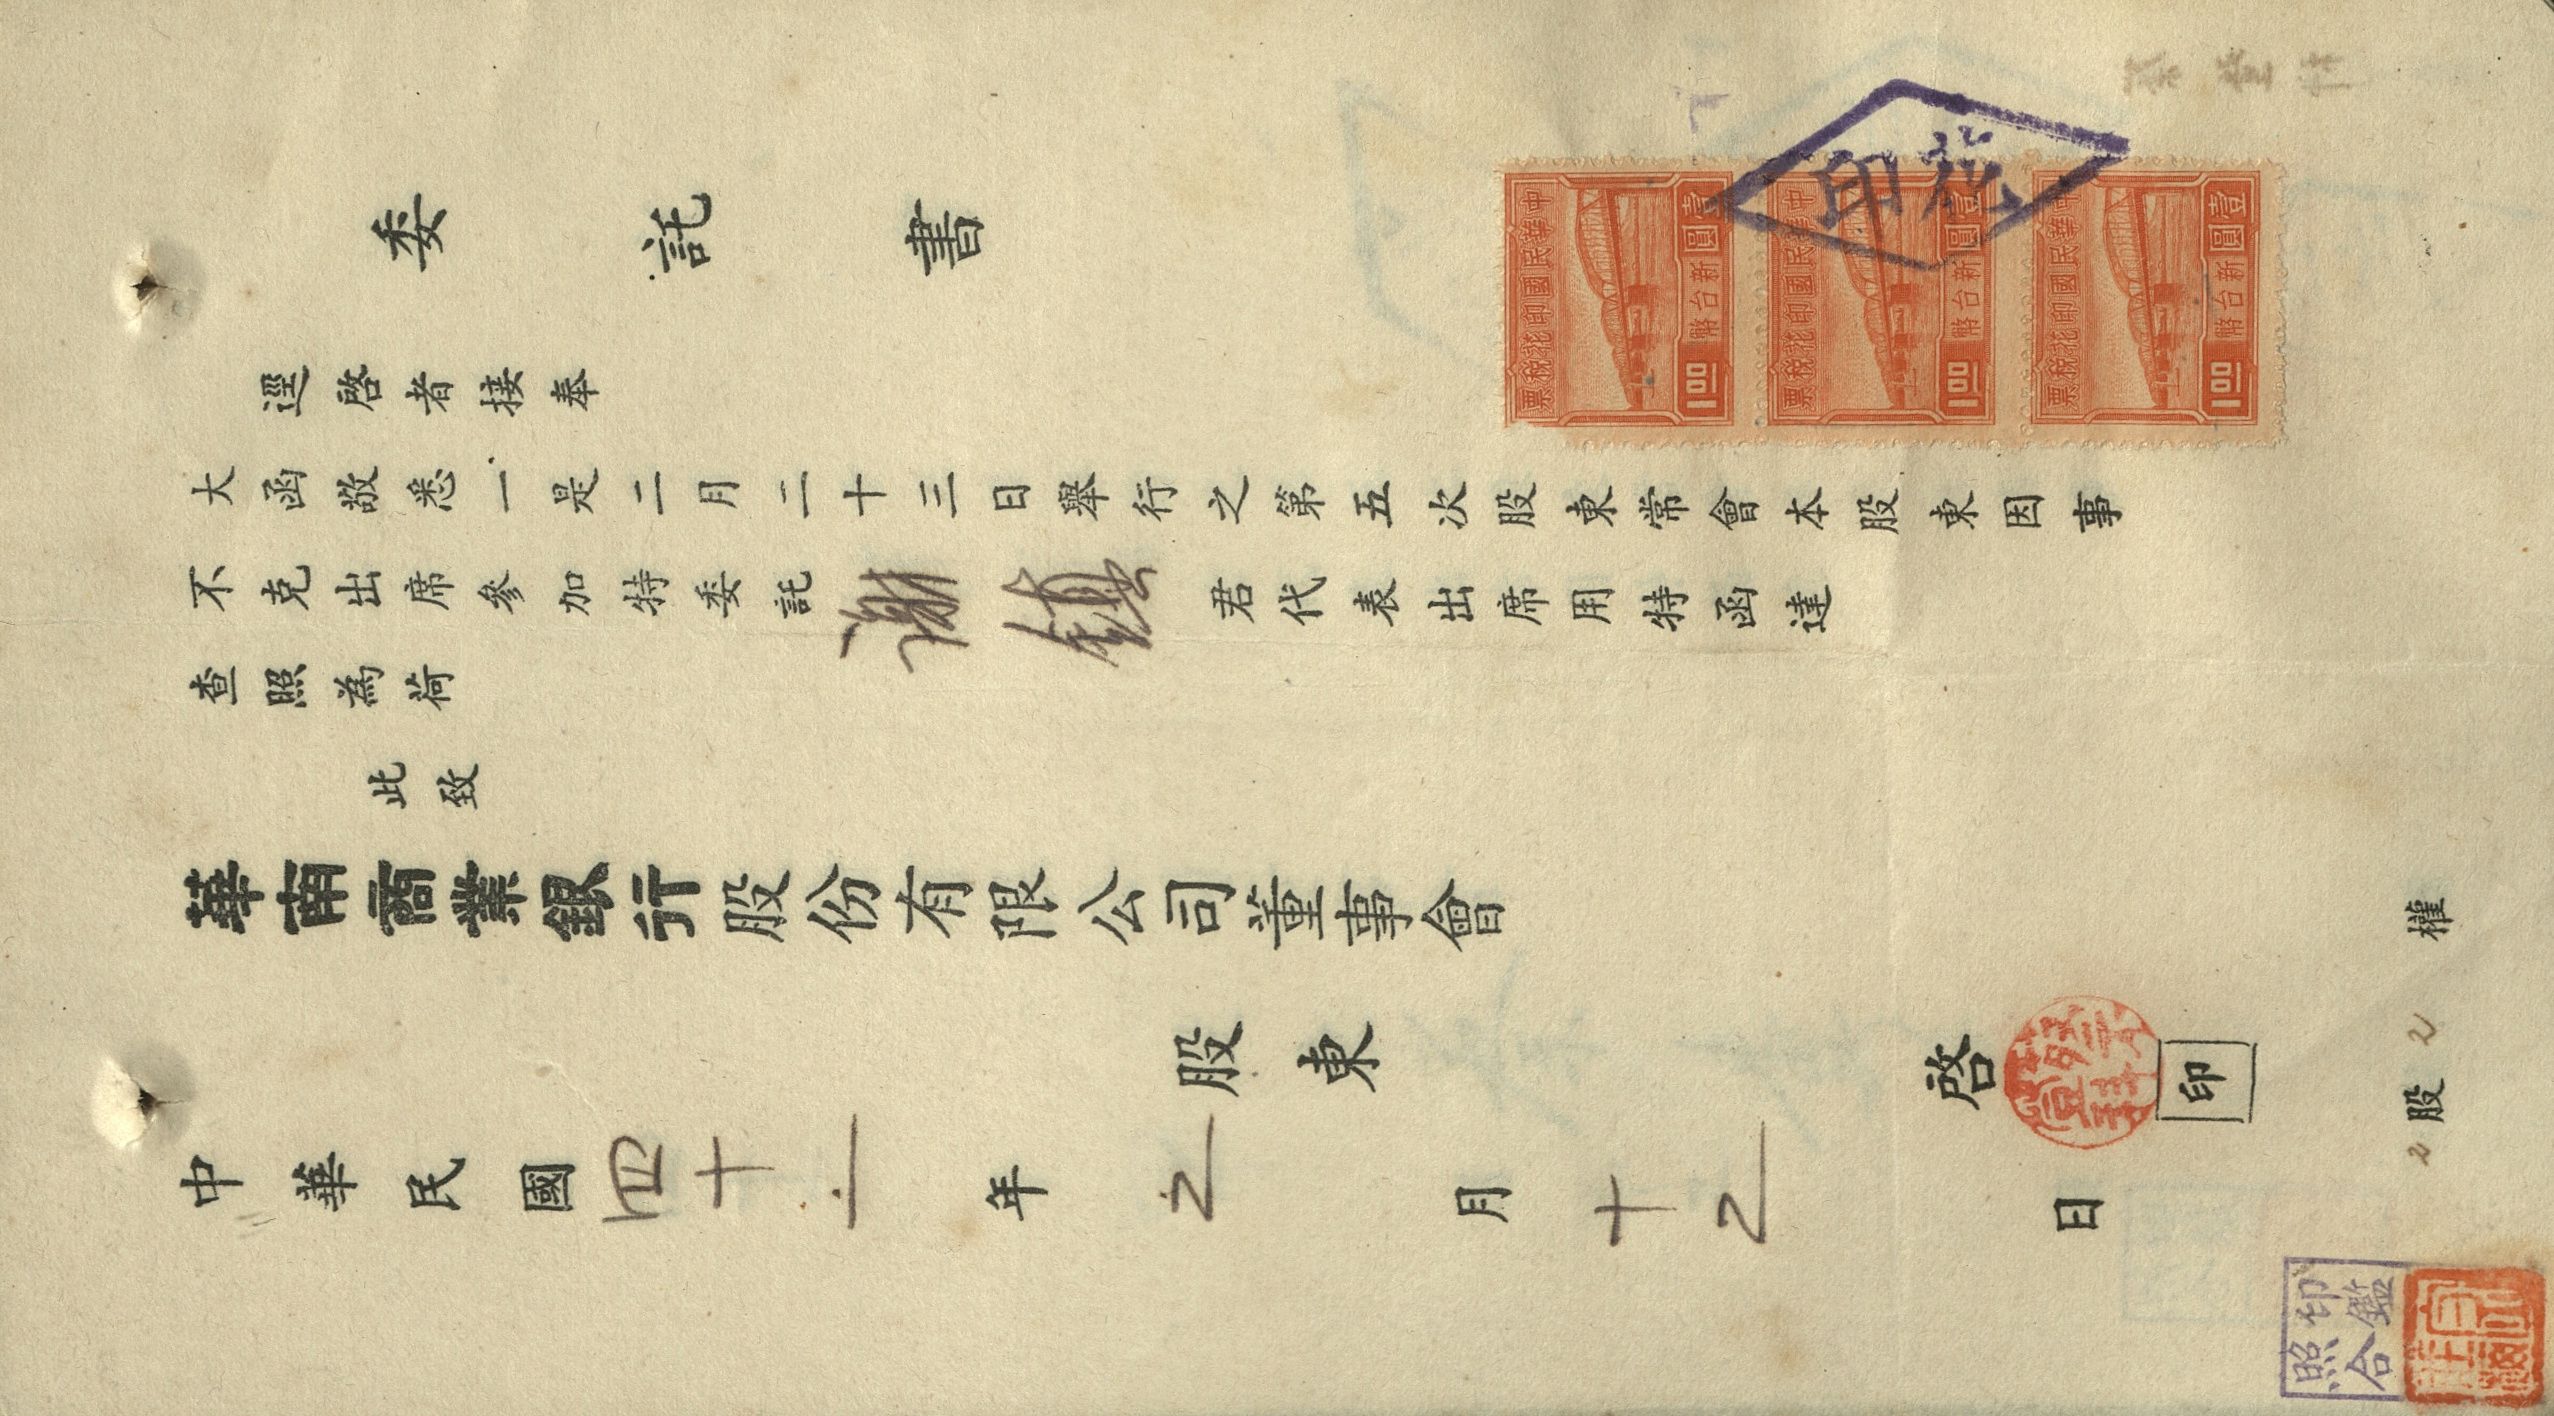 委託書
逕啓者接奉
大函敬悉一是二月二十三日舉行之第五次股東常會本股東因事
不克出席參加特委託謝鎮君代表出席用特函達
查照為荷
此致
華南商業銀行股份有限公司董事會
股東 啓 印
中華民國四十一年2月十2日
股 2 權
中華民國印花稅票
壹圓 新台幣 1.00
中華民國印花稅票
壹圓 新台幣 1.00
中華民國印花稅票
壹圓 新台幣 1.00
印鑑
照合